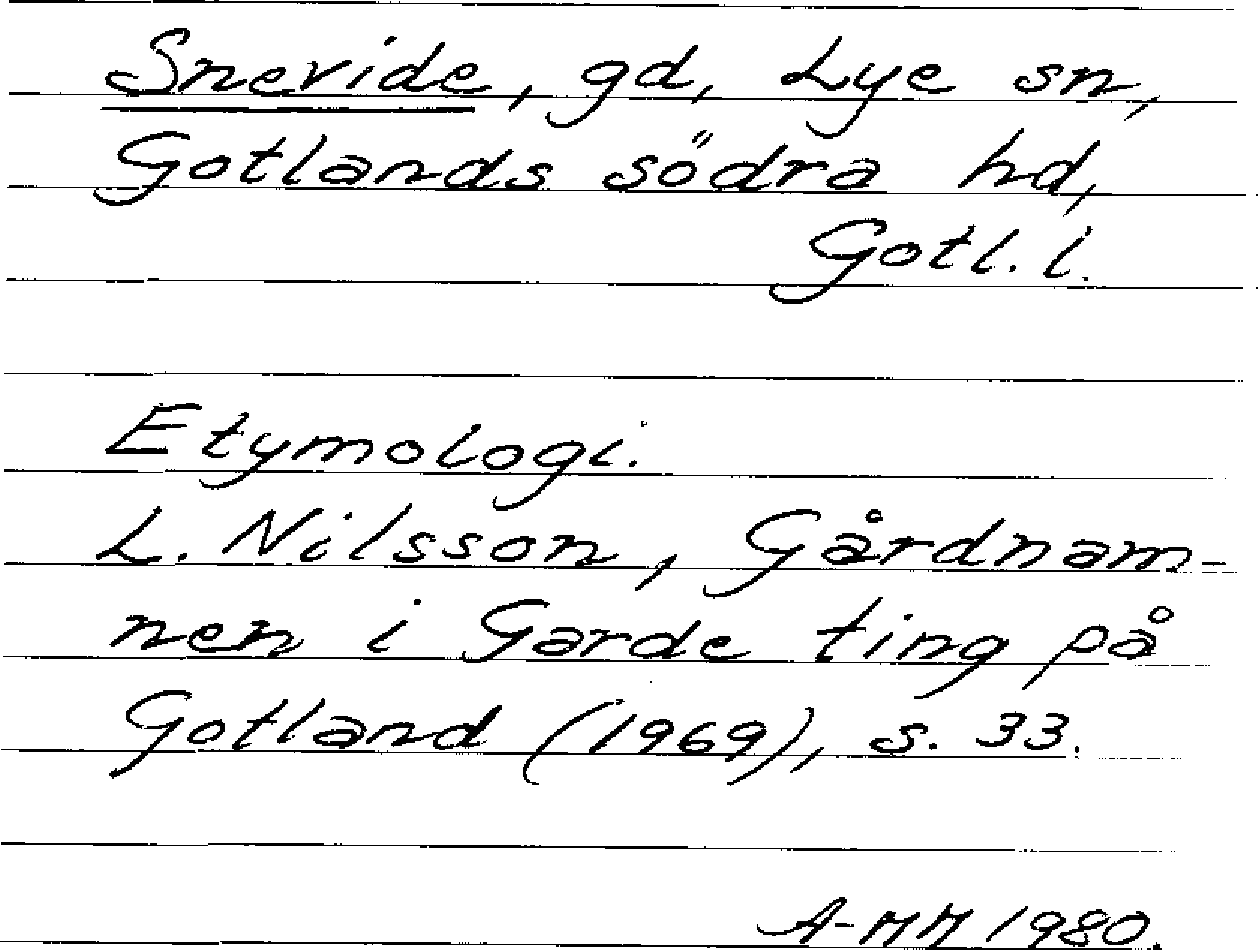 Snevide, gd, Lye sn,
Gotlands södra hd,
Gotl. l.
Etymologi.
L. Nilsson, Gårdnam-
nen i Garde ting på
Gotland (1969), s. 33.
A-MM 1980.